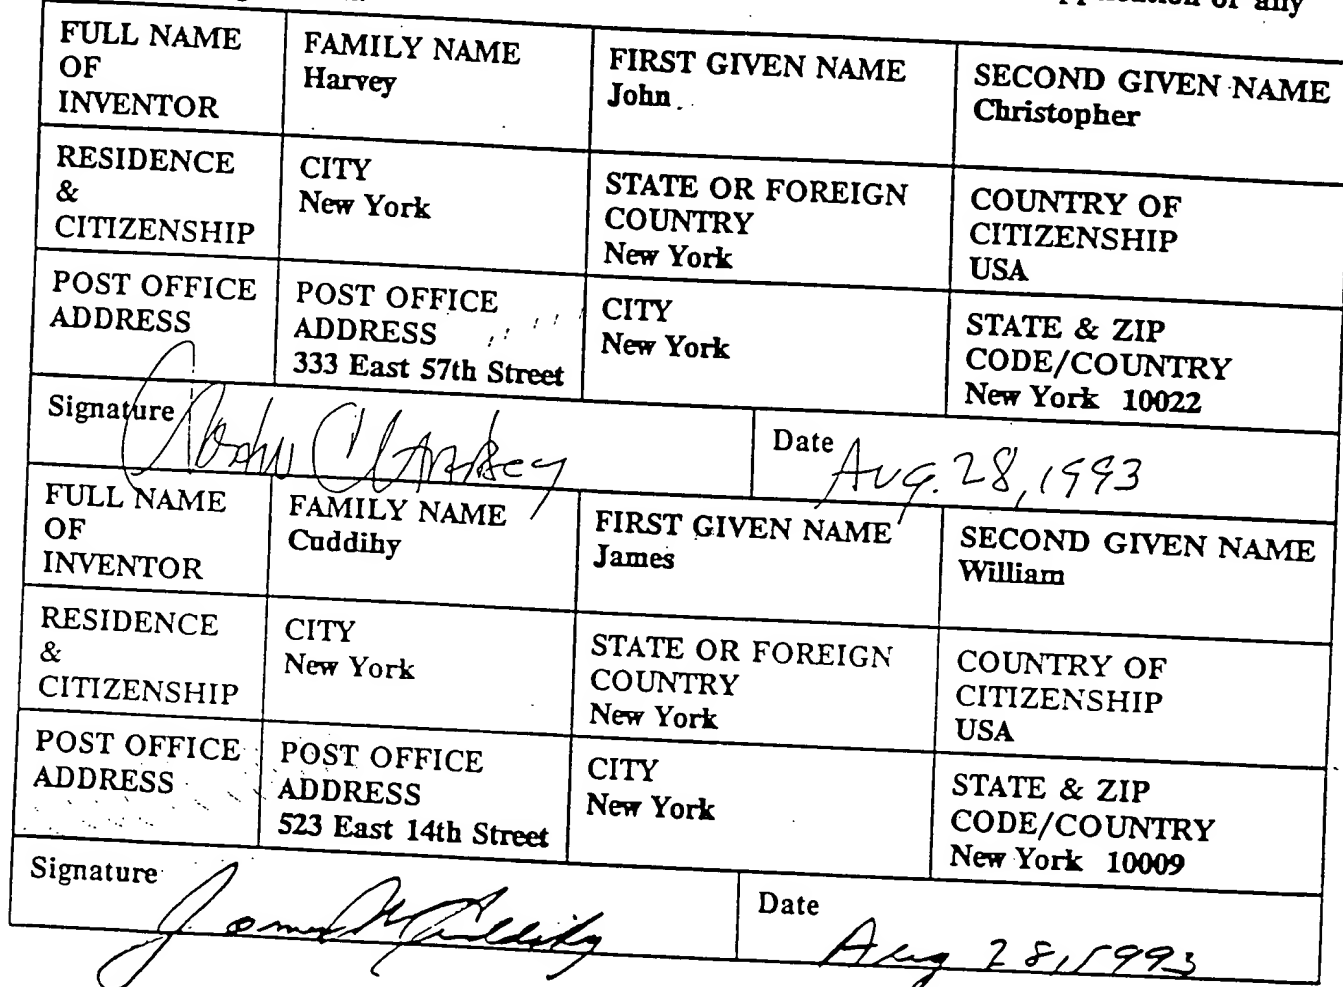 any
FULL NAME
OF
INVENTOR
FAMILY NAME
Harvey
FIRST GIVEN NAME
John
SECOND GIVEN NAME
Christopher
RESIDENCE
&
CITIZENSHIP
CITY
New York
STATE OR FOREIGN
COUNTRY
New York
COUNTRY OF
CITIZENSHIP
USA
POST OFFICE
ADDRESS
POST OFFICE
ADDRESS
333 East 57th Street
CITY
New York
STATE & ZIP
CODE/COUNTRY
New York 10022
Signature
John C Harvey
Date
Aug. 28, 1993
FULL NAME
OF
INVENTOR
FAMILY NAME
Cuddihy
FIRST GIVEN NAME
James
SECOND GIVEN NAME
William
RESIDENCE
&
CITIZENSHIP
CITY
New York
STATE OR FOREIGN
COUNTRY
New York
COUNTRY OF
CITIZENSHIP
USA
POST OFFICE
ADDRESS
POST OFFICE
ADDRESS
523 East 14th Street
CITY
New York
STATE & ZIP
CODE/COUNTRY
New York 10009
Signature
James W Cuddihy
Date
Aug 28, 1993